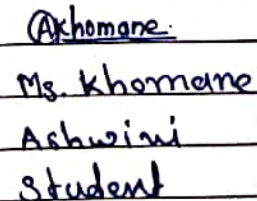 Akhomane.
Ms. Khomane
Ashwini
Student